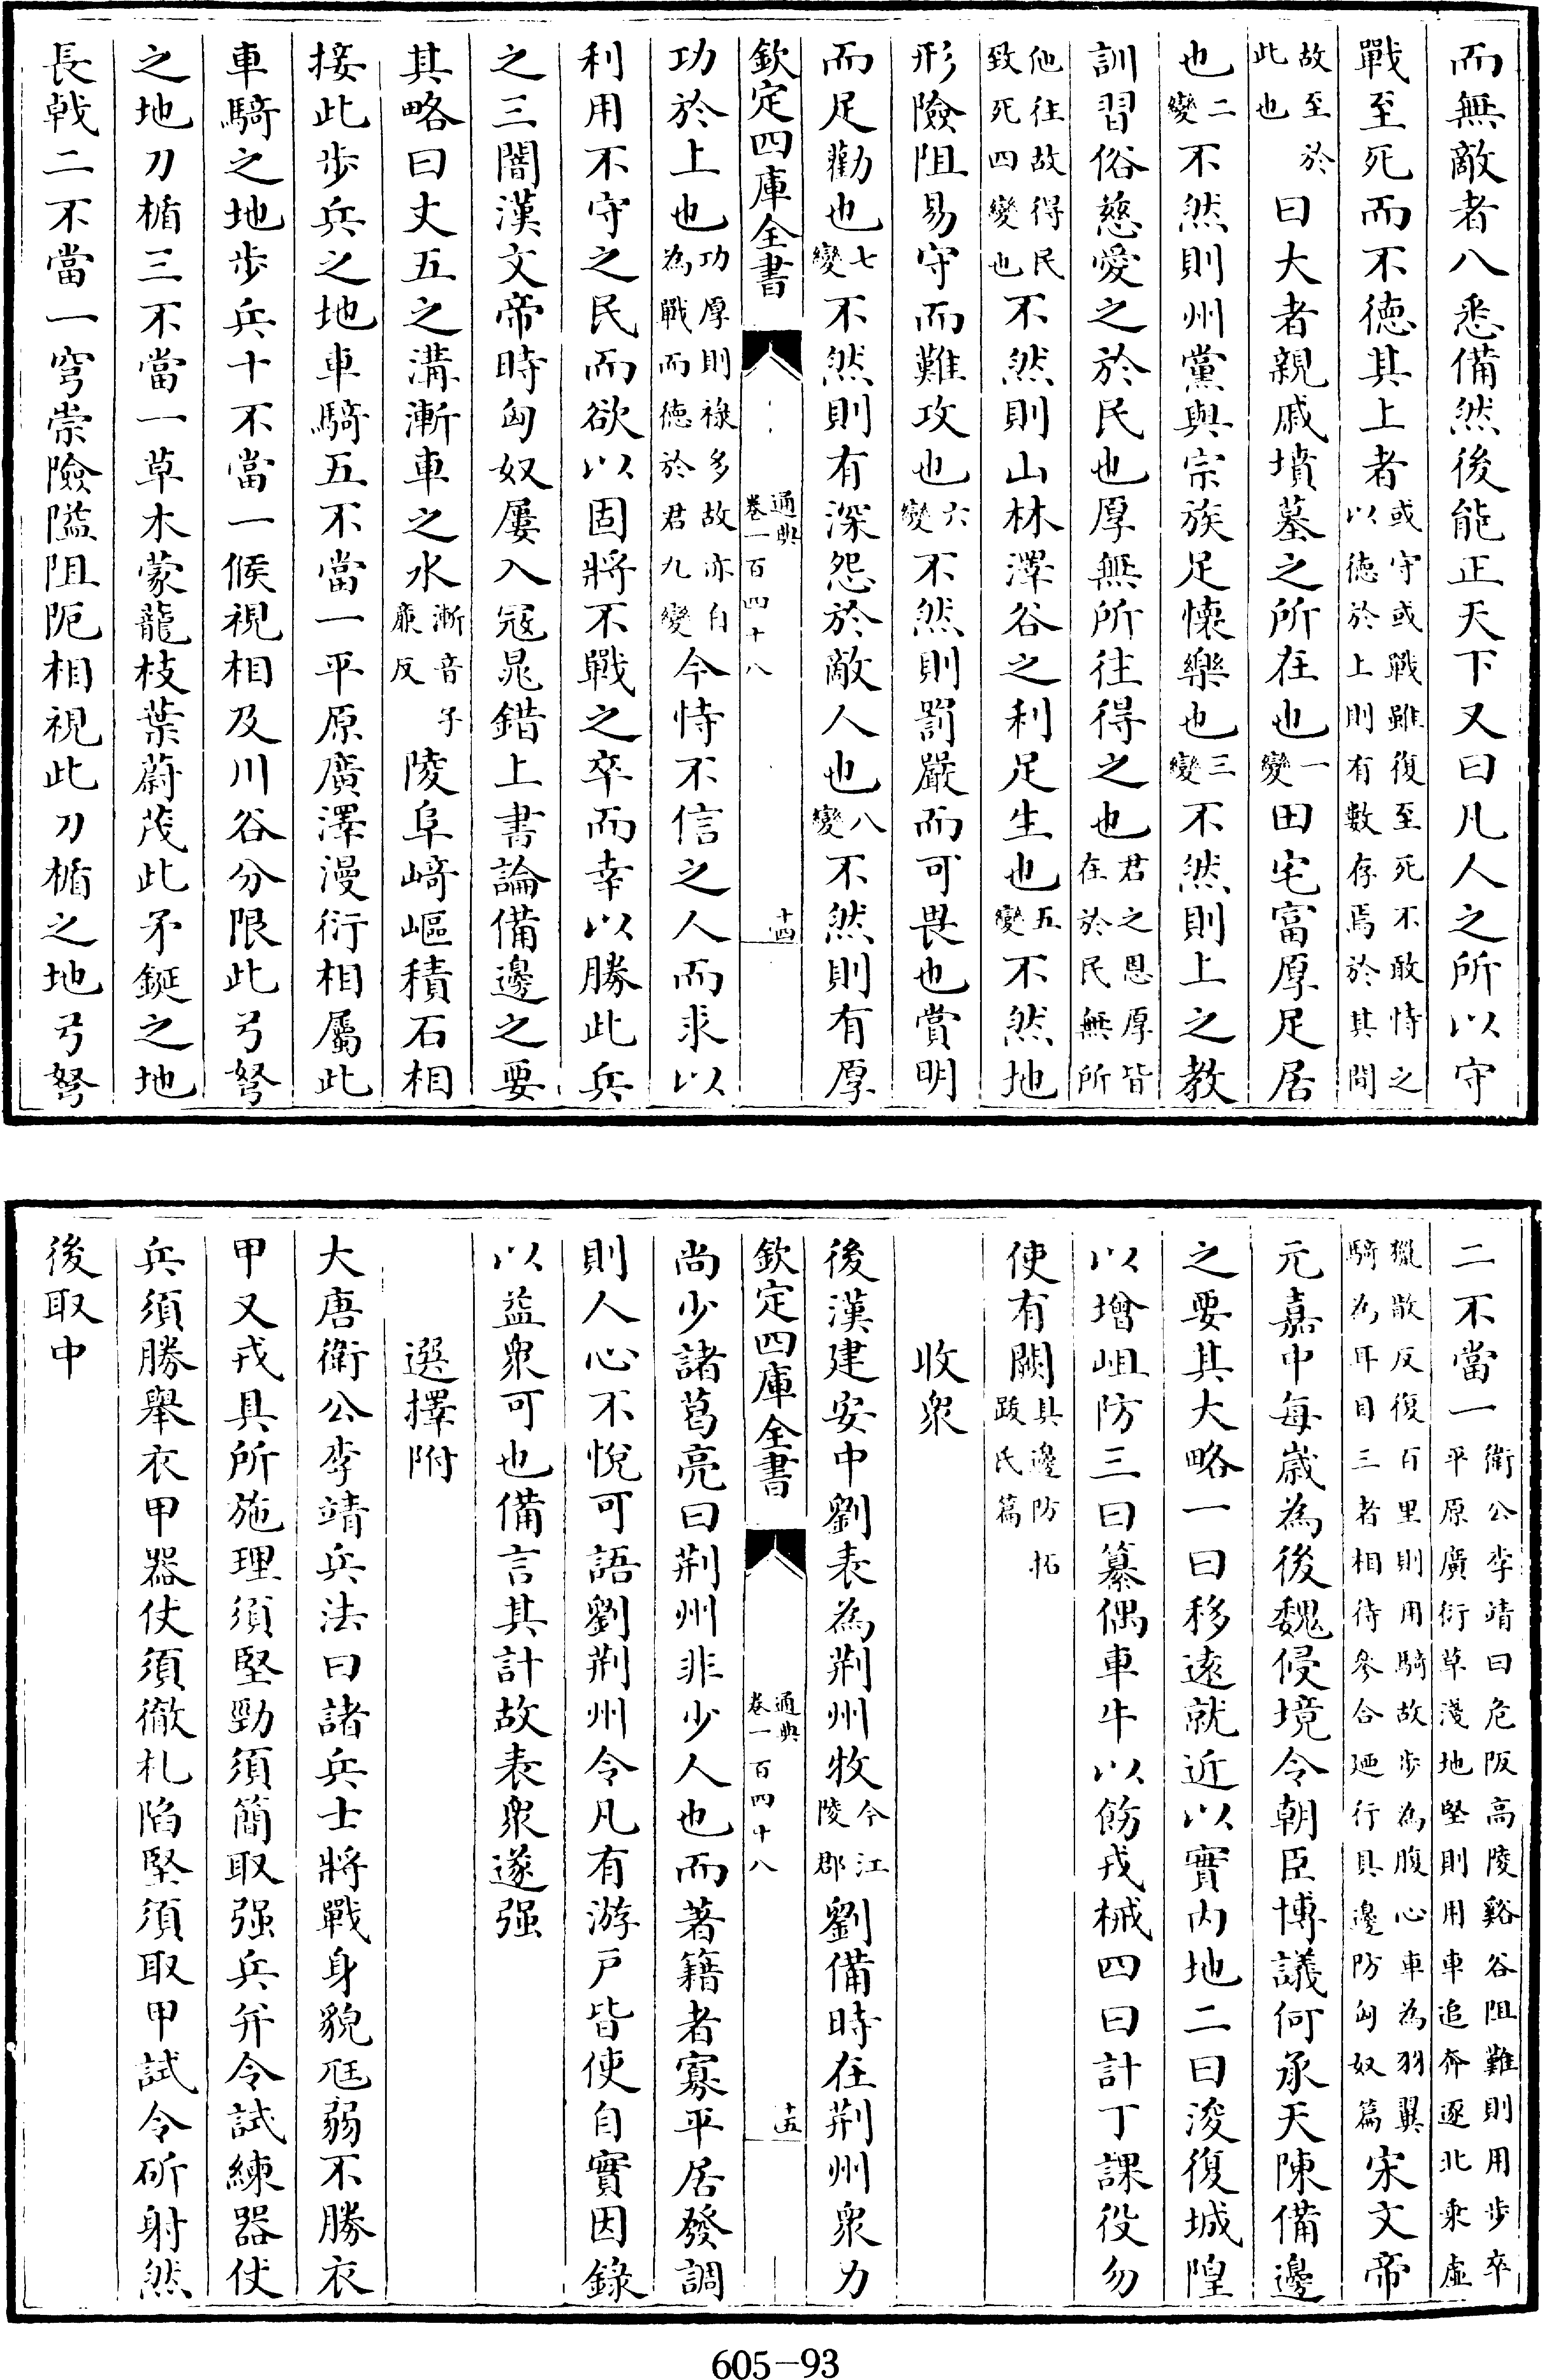 而無敵者八悉備然後能正天下又曰凡人之所以守
戰至死而不德其上者或守或戰雖復至死不敢恃之以德於上則有數存焉於其間
故至於此也曰大者親戚墳墓之所在也一變田宅富厚足居
也二變不然則州黨與宗族足懷樂也三變不然則上之教
訓習俗慈愛之於民也厚無所往得之也君之恩厚皆在於民無所
他往故得民致死四變也不然則山林澤谷之利足生也五變不然地
形險阻易守而難攻也六變不然則罰嚴而可畏也賞明
而足勸也七變不然則有深怨於敵人也八變不然則有厚
欽定四庫全書 通典卷一百四十八 十四
功於上也功厚則祿多故亦自為戰而德於君九變今恃不信之人而求以
利用不守之民而欲以固將不戰之卒而幸以勝此兵
之三闇漢文帝時匈奴屢入寇晁錯上書論備邊之要
其略曰丈五之溝漸車之水漸音子廉反陵阜崎嶇積石相
接此步兵之地車騎五不當一平原廣澤漫衍相屬此
車騎之地步兵十不當一候視相及川谷分限此弓弩
之地刀楯三不當一草木蒙蘢枝葉蔚茂此矛鋋之地
長戟二不當一穹崇險隘阻阨相視此刀楯之地弓弩
二不當一衛公李靖曰危阪高陵谿谷阻難則用步卒平原廣衍草淺地堅則用車追奔逐北乘虛
獵散反復百里則用騎故步為腹心車為羽翼騎為耳目三者相待參合廼行具邊防匈奴篇宋文帝
元嘉中每歲為後魏侵境令朝臣博議何承天陳備邊
之要其大略一曰移遠就近以實內地二曰浚復城隍
以增岨防三曰纂偶車牛以飭戎械四曰計丁課役勿
使有闕具邊防拓跋氏篇
收衆
後漢建安中劉表為荆州牧今江陵郡劉備時在荆州衆力
欽定四庫全書 通典卷一百四十八 十五
尚少諸葛亮曰荆州非少人也而著籍者寡平居發調
則人心不悅可語劉荆州令凡有游戶皆使自實因錄
以益衆可也備言其計故表衆遂强
選擇附
大唐衛公李靖兵法曰諸兵士將戰身貌尫弱不勝衣
甲又戎具所施理須堅勁須簡取强兵并令試練器仗
兵須勝舉衣甲器仗須徹札陷堅須取甲試令斫射然
後取中
605-93